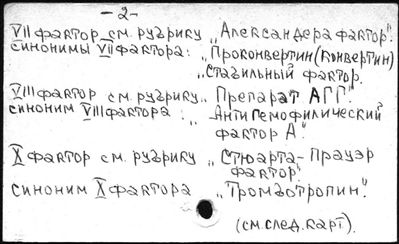 - 2 -
VII фактор см. рубрику „Александера фактор".
синонимы VII фактора: „Проконвертин (конвертин)
„Стабильный фактор.
VIII фактор см. рубрику „Препарат АГГ".
синоним VIII фактора: „Антигемофилический
фактор А".
X фактор см. рубрику „Стюарта-Прауэр
фактор".
синоним X фактора „Тромботропин".
(см. след. карт).